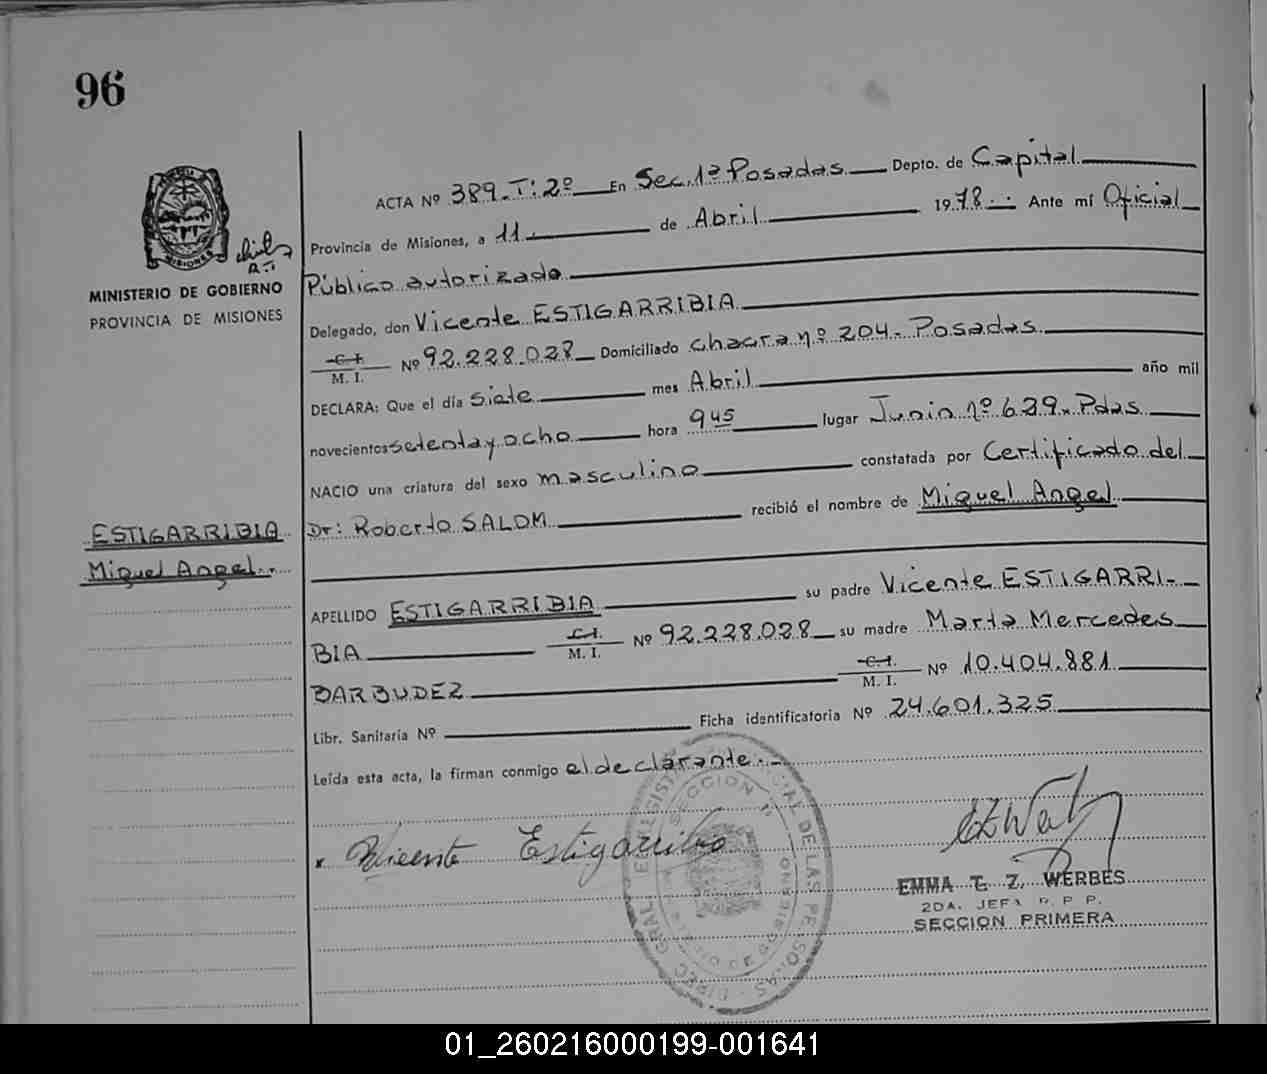 96
ACTA Nº 389.T:2º En Sec.1ª Posadas Depto. de Capital
Provincia de Misiones, a 11. de Abril 1978.. Ante mí Oficial
Público autorizado
MINISTERIO DE GOBIERNO
PROVINCIA DE MISIONES
Delegado, don Vicente ESTIGARRIBIA
C.I. M. I. Nº 92.228.028 Domiciliado chacra nº 204.- Posadas
DECLARA: Que el día siete mes Abril año mil
novecientos setenta y ocho hora 9 45 lugar Junin nº 639. Pdas
NACIO una criatura del sexo masculino constatada por Certificado del
Dr: Roberto SALOM recibió el nombre de Miguel Angel
ESTIGARRIBIA
Miguel Angel..
APELLIDO ESTIGARRIBIA su padre Vicente ESTIGARRI-
BIA C.I. M. I. Nº 92.228.028 su madre Marta Mercedes
BARBUDEZ C.I. M. I. Nº 10.404.881
Libr. Sanitaria Nº Ficha identificatoria Nº 24.601.325
Leída esta acta, la firman conmigo el declarante.-
x Vicente Estigarribia
EMMA T. Z. WERBES
2DA. JEFA R. P. P.
SECCION PRIMERA
01_260216000199-001641